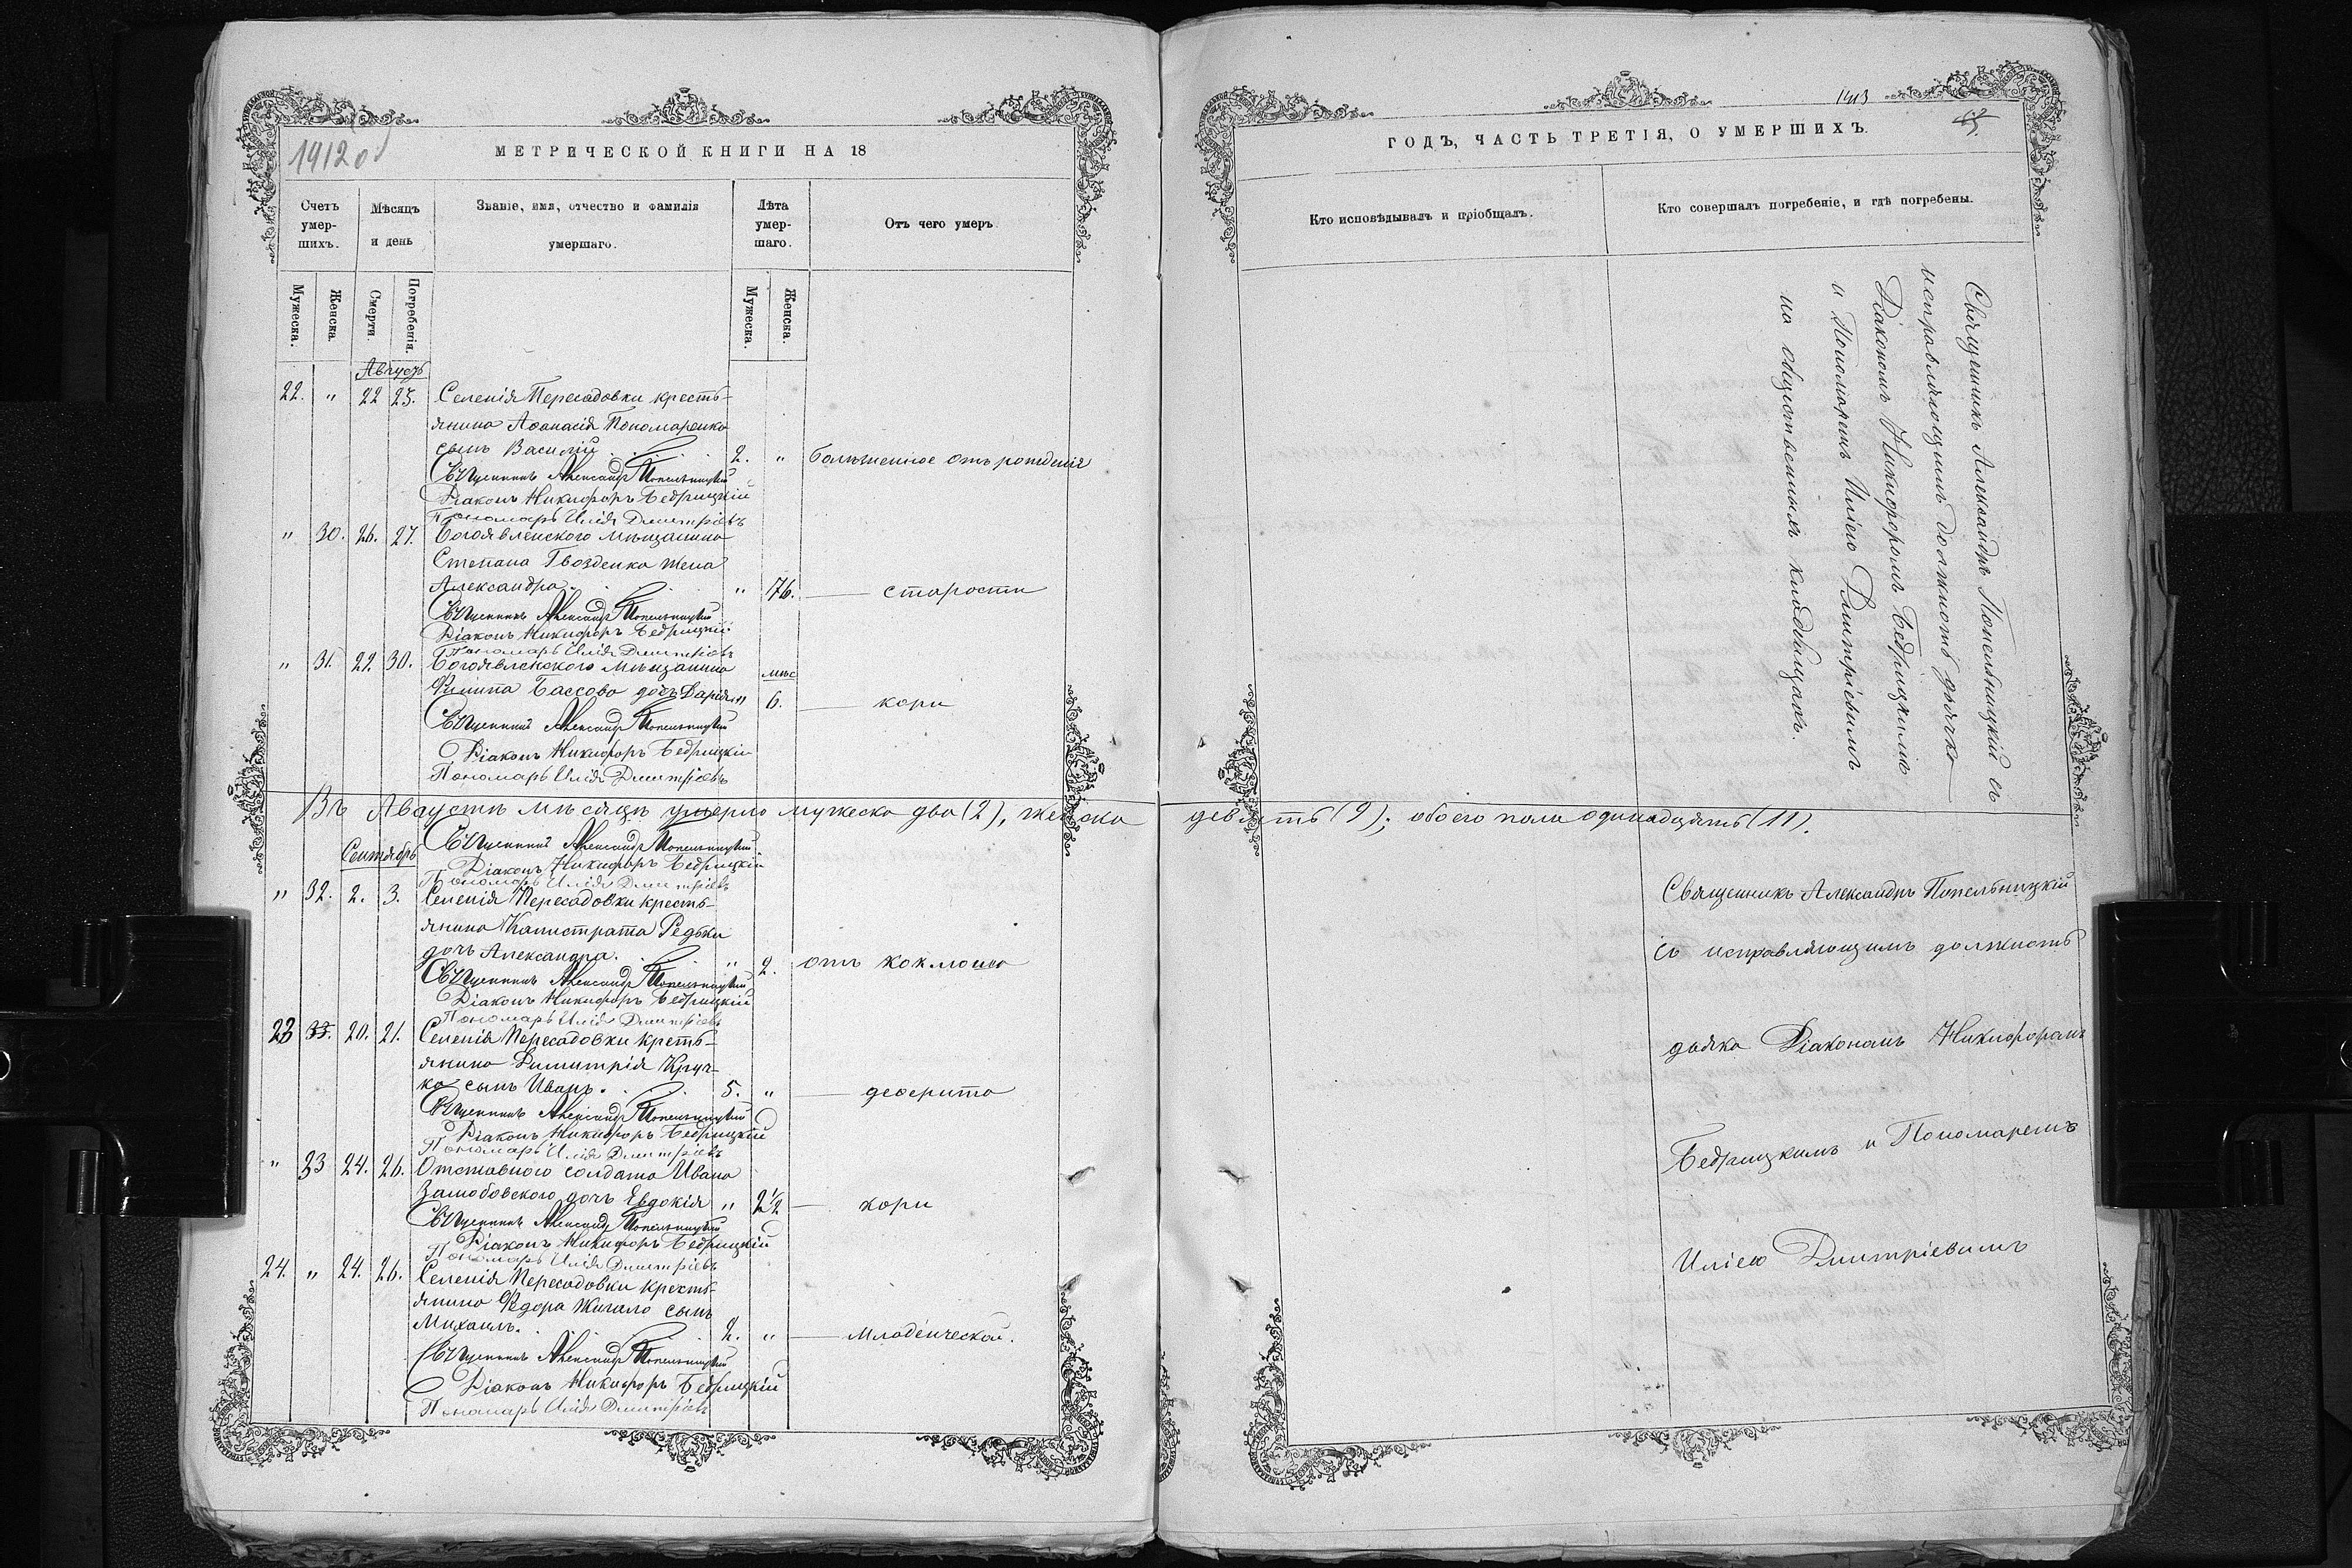 1912 од
МЕТРИЧЕСКОЙ КНИГИ НА 18
Счетъ умер-шихъ.
Мѣсяцъ и день
Званіе, имя, отчество и фамилія умершаго.
Лѣта умер-шаго.
Отъ чего умеръ
Мужеска. Женска. Смерти. Погребенія. Мужеска. Женска.
Августъ
22. " 22 23. Селенія Пересадовки кресть-
янина Аѳанасія Пономаренко
сынъ Василій . . . 2. " болѣзненное отъ рожденія
Священникъ Александръ Попельницкій
Діаконъ Никифоръ Бедрицкій
Пономарь Илія Дмитріевъ
" 30. 26. 27. Богоявленского мѣщанина
Степана Гвозденка жена
Александра . . " 76. — старости
Священникъ Александръ Попельницкій
Діаконъ Никифоръ Бедрицкій
Пономарь Илія Дмитріевъ
" 31. 29. 30. Богоявленского мѣщанина
мѣс
Филипа Бассова дочь Дарія " 6. — кори
Священникъ Александръ Попельницкій
Діаконъ Никифоръ Бедрицкій
Пономарь Илія Дмитріевъ
Въ Августѣ мѣсяцѣ умерло мужеска два (2), женска девять (9); обоего пола одинадцять (11).
Священникъ Александръ Попельницкій
Сентябрь
Діаконъ Никифоръ Бедрицкій
Пономарь Илія Дмитріевъ
" 32. 2. 3. Селенія Пересадовки кресть-
янина Калистрата Редьки
дочь Александра. . . " 2. отъ коклюша
Священникъ Александръ Попельницкій
Діаконъ Никифоръ Бедрицкій
Пономарь Илія Дмитріевъ
23 33. 20. 21. Селенія Пересадовки кресть-
янина Димитрія Крич-
ка сынъ Иванъ. . . 5. " — дефтерита
Священникъ Александръ Попельницкій
Діаконъ Никифоръ Бедрицкій
Пономарь Илія Дмитріевъ
" 33 24. 26. Отставного солдата Ивана
дочь Евдокія " 2½ — кори
Священникъ Александръ Попельницкій
Діаконъ Никифоръ Бедрицкій
Пономарь Илія Дмитріевъ
24. " 24. 26. Селенія Пересадовки кресть-
янина Федора Жигало сынъ
Михаилъ. . . 2. " — младенческой.
Священникъ Александръ Попельницкій
Діаконъ Никифоръ Бедрицкій
Пономарь Илія Дмитріевъ
143
ГОДЪ, ЧАСТЬ ТРЕТІЯ, О УМЕРШИХЪ.
Кто исповѣдывалъ и пріобщалъ.
Кто совершалъ погребеніе, и гдѣ погребены.
Священникъ Александръ Попельницкій съ
исправляющимъ должность дьячка
Діакономъ Никифоромъ Бедрицкимъ
и Пономаремъ Иліею Дмитріевимъ
на общественныхъ кладбищахъ.
Священникъ Александръ Попельницкій
съ исправляющимъ должность
дьяка Діакономъ Никифоромъ
Бедрицкимъ и Пономаремъ
Иліею Дмитріевимъ